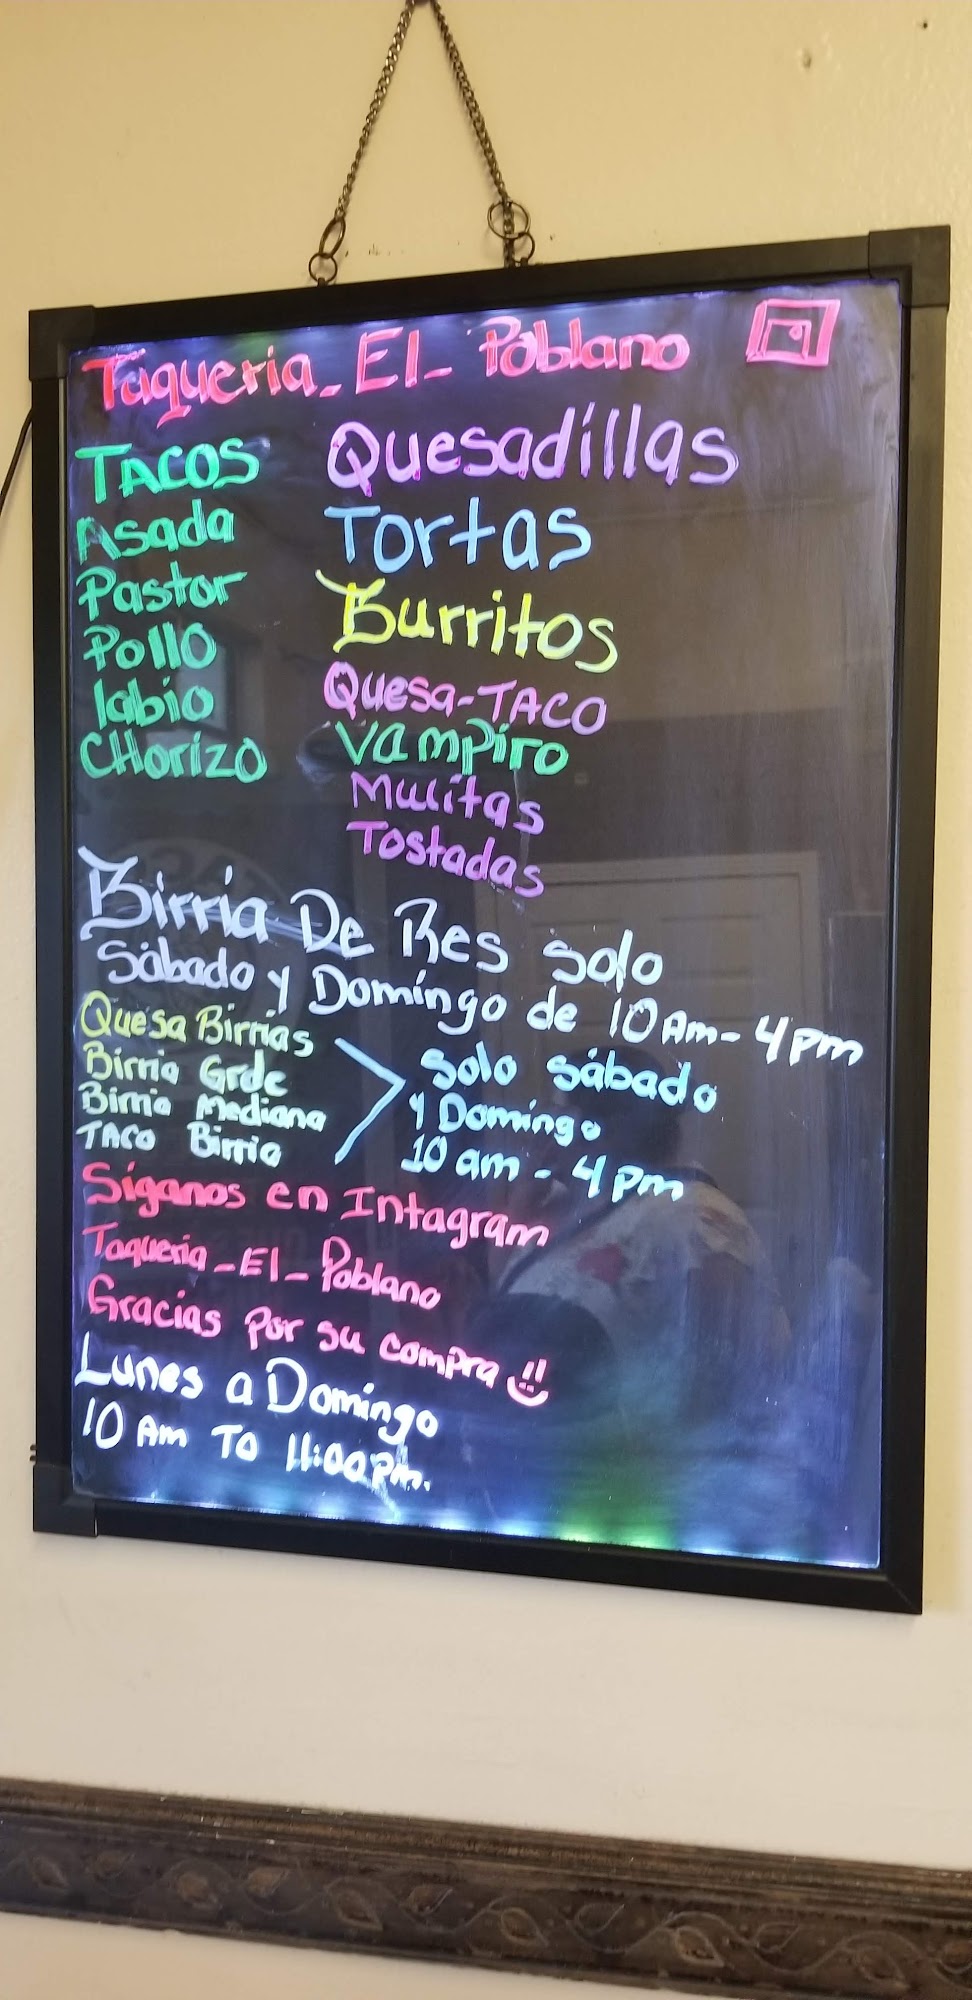 Taqueria_El_Poblano
TACOS
Asada
Pastor
Pollo
labio
CHorizo
Quesadillas
Tortas
Burritos
Quesa-TACO
Vampiro
Mulitas
Tostadas
Birria De Res solo
Sábado y Domingo de 10 Am - 4 pm
Quesa Birrias
Birria Grde
Birria Mediana
TACO Birria
solo sábado
y Domingo
10 am - 4 pm
Síganos en Intagram
Taqueria_El_Poblano
Gracias por su compra
Lunes a Domingo
10 Am TO 11:00 pm.